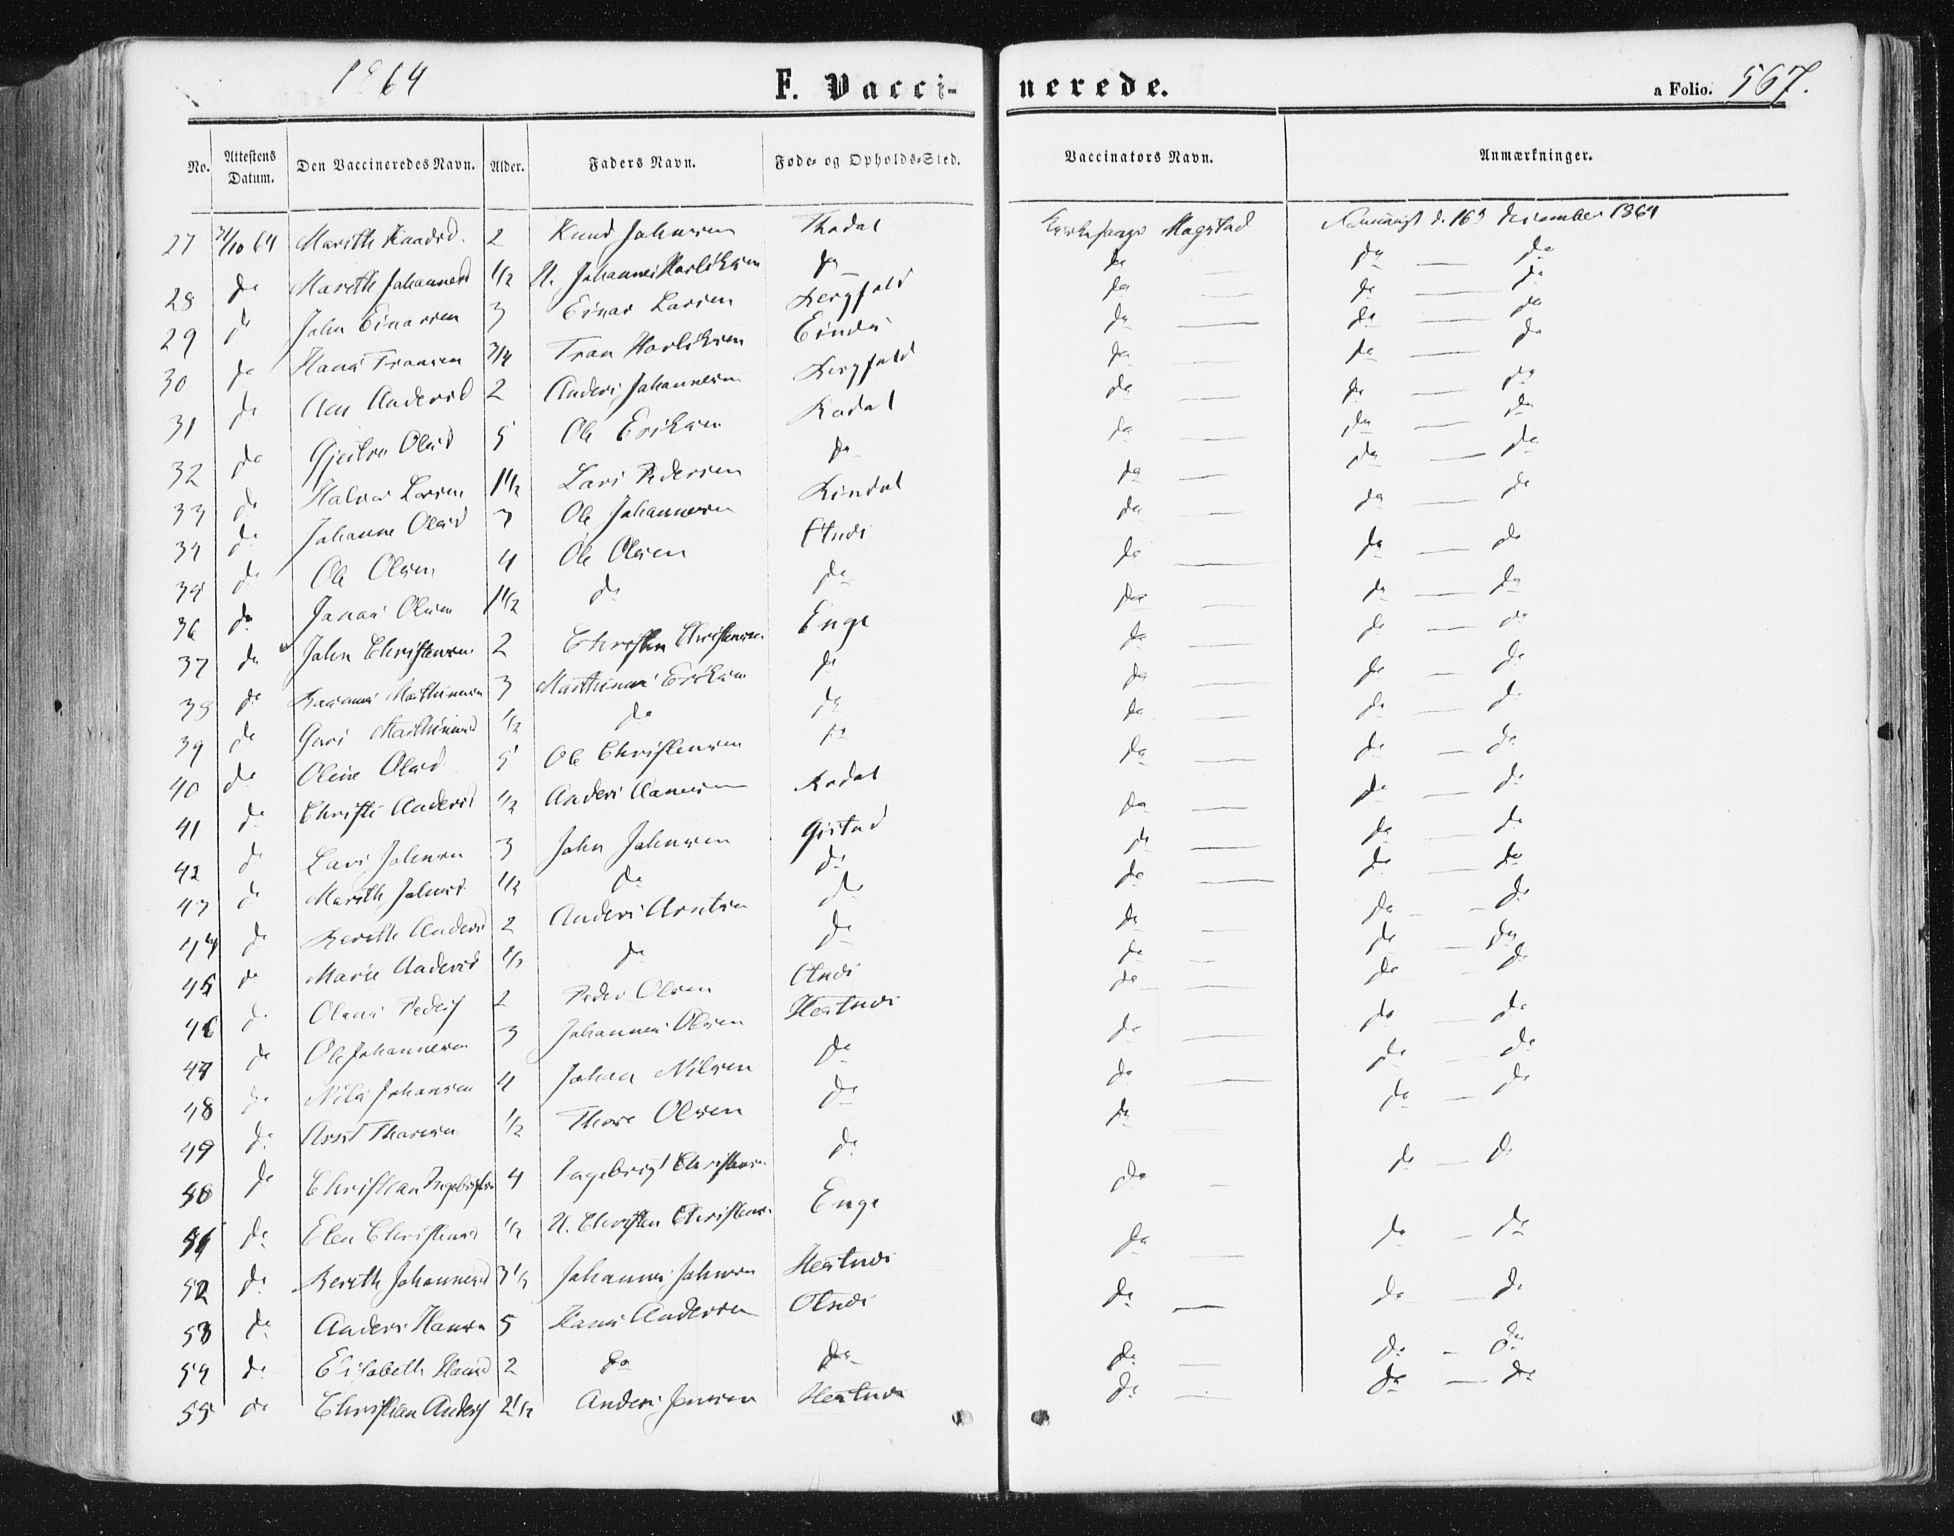 1864
F. Vaccinerede.
a Folio. 567.
No. Attestens Datum. Den Vaccineredes Navn. Alder. Faders Navn. Føde- og Opholds-Sted. Vaccinators Navn. Anmærkninger.
27 31/10 64 Marith Knudsd. 2 Knud Johnsen Thodal Kirkesanger Magstad d. 16d December 1864
28 do Marith Johannesd 1/2 U. Johannes do do — do — do
29 do John Einarsen 3 Einar Larsen Bergfald do — do — do
30 do Hans Tronsen 3/4 Tron do — do — do
31 do Ane Andersd 2 Anders Johannesen Bergfald do — do — do
32 do Olsd 5 Ole Eriksen Rodal do — do — do
33 do Halvor Larsen 1 1/2 Lars Pedersen do do — do — do
34 do Johanne Olsd 3 Ole Johannesen do — do — do
35 do Ole Olsen 4 Ole Olsen do — do — do
36 do Jonas Olsen 1 1/2 do do do — do — do
37 do John Christensen 2 Christen Christensen Enge do — do — do
38 do Rasmus Mathisen 3 Eriksen do do — do — do
39 do Guri 1/2 do do do — do — do
40 do Oline Olsd 5 Ole Christensen do do — do — do
41 do Christi Andersd 1/2 Anders Rodal do — do — do
42 do Lars Johnsen 3 John Johnsen Gistad do — do — do
43 do Marith Johnsd 1/2 do do do — do — do
44 do Bereth Andersd 2 Anders Arntsen do do — do — do
45 do Marie Andersd 1/2 do do do — do — do
46 do Olaus Peders 2 Peder Olsen do — do — do
47 do Ole Johannesen 3 Johannes Olsen Hestnes do — do — do
48 do Nils Johansen 4 Johan Nilsen do do — do — do
49 do Arnt Thoresen 1/2 Thore Olsen do do — do — do
50 do Christian Ingebrigtsen 4 Ingebrigt Christensen do do — do — do
51 do Elen Christensd 1/2 U. Christen Christensen Enge do — do — do
52 do Bereth Johannesd 3 1/2 Johannes Johnsen Hestnes do — do — do
53 do Anders Hansen 5 Hans Andersen do — do — do
54 do Elisabeth Hansd 2 do do do — do — do
55 do Christian Anders 2 1/2 Anders Jensen Hestnes do — do — do